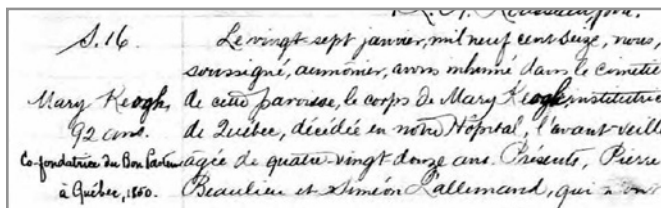 S. 16.
Mary Keogh,
92 ans.
Co-fondatrice du Bon Pasteur
à Québec, 1850.
Le vingt-sept janvier, mil neuf cent seize, nous,
soussigné, aumônier, avons inhumé dans le cimetiè
de cette paroisse, le corps de Mary Keogh institutric
de Québec, décédée en notre Hôpital, l'avant-veille
agée de quatre-vingt douze ans. Présents, Pierre
Beaulieu et Siméon Lallemand, qui n'ont